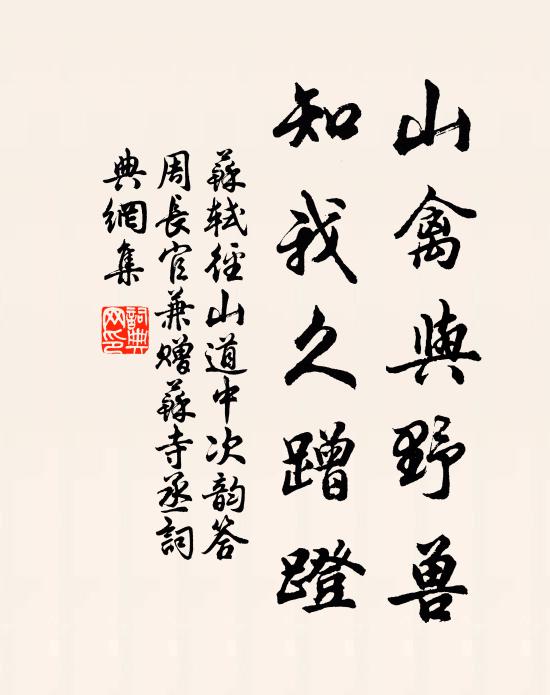 山禽與野兽
知我久蹭蹬
蘇軾徑山道中次韵答
周長官兼贈蘇寺丞詞
典網集
詞典网印